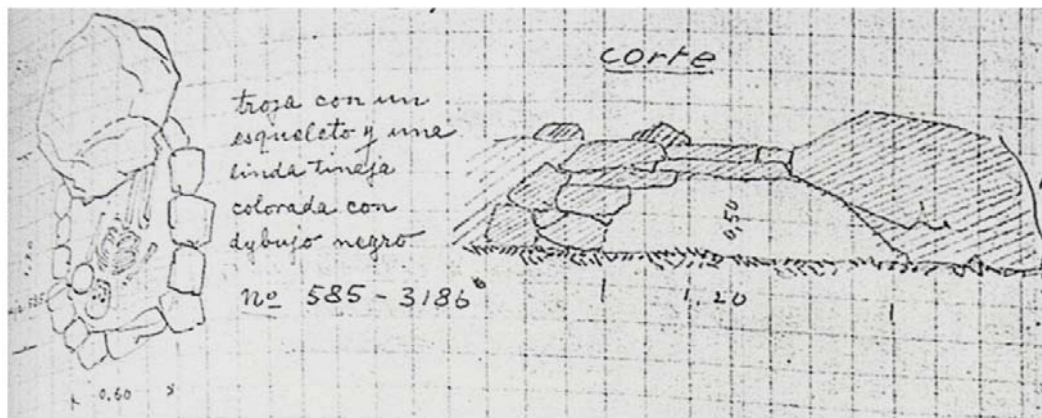 corte
troja con un
esqueleto y une
linda tineja
colorada con
dybujo negro
nº 585 - 3186 b
0,50
1.20
0.60